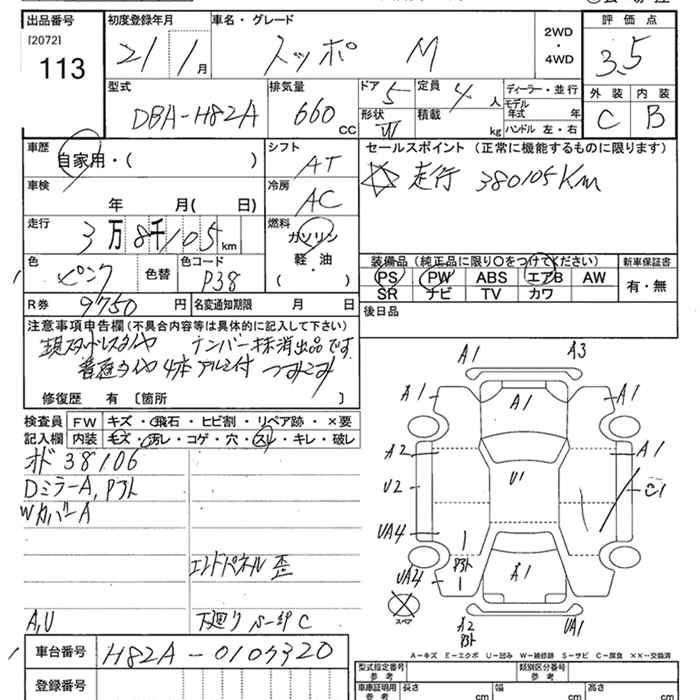 出品番号 初度登録年月 車名・グレード 評価点
[2072] 113 21/1月 スッポ M 2WD・4WD 3.5
型式 排気量 ドア 5 定員 4人 ディーラー・並行 外装 内装
DBA-H82A 660 CC 形状 VI 積載 kg モデル年式 年 C B
ハンドル 左・右
車歴 シフト セールスポイント (正常に機能するものに限ります)
自家用・( ) AT ☆ 走行 380105Km
車検 冷房
年 月( 日) AC
走行 燃料
3万8千105km ガソリン
軽・油
( )
色 色替 色コード 装備品 (純正品に限り〇をつけてください) 新車保証書
ピンク P38 PS PW ABS エアB AW 有・無
SR ナビ TV カワ
R券 9750円 名変通知期限 月 日 後日品
注意事項申告欄(不具合内容等は具体的に記入して下さい)
現スタッドレスタイヤ ナンバー抹消出品です
普通タイヤ4本アルミ付 つみこみ
修復歴 有 〔箇所 〕
検査員 FW キズ・飛石・ヒビ割・リペア跡・×要
記入欄 内装 モズ・汚レ・コゲ・穴・スレ・キレ・破レ
オド 38106
DミラーA,Pヌト
WカバーA
エンドパネル 歪
A,U 下廻り S-錆 C
車台番号 H82A-0107320
登録番号
A1 A3
A1 A1 A1
A2 A1
U2 U1 C1
UA4
UA4 A1
スペア
A2 UA1
A-キズ E-エクボ U-凹み W-補修跡 S-サビ C-腐食 ××-交換済
型式指定番号 参考 類別区分番号 参考
車庫証明用 参考 長さ cm 幅 cm 高さ cm